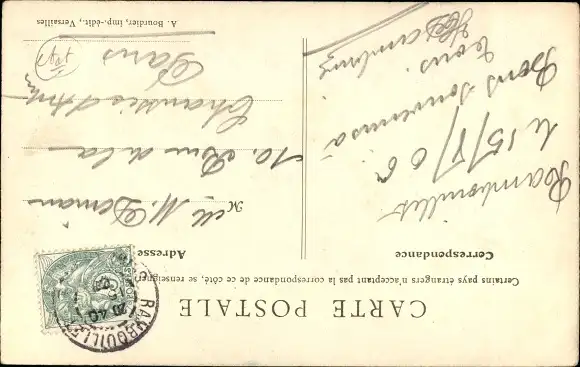 CARTE POSTALE
Certains pays étrangers n'acceptant pas la correspondance de ce côté, se renseigner
Correspondance
Adresse
Rambouillet
le 15/8/06
Bons souvenirs à
tous.
M elle M. Demian
10. Rue de la
Chaussée d'Antin
Paris
RAMBOUILLET
A. Bourdier, imp.-édit., Versailles